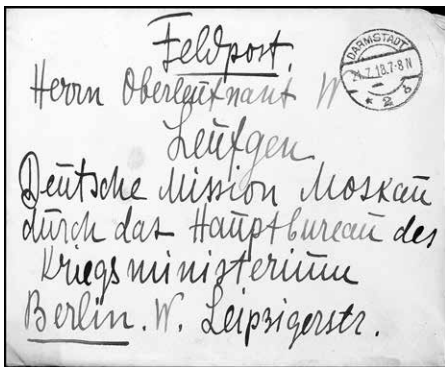 Feldpost.
DARMSTADT
7.18.7-8N
* 2 b
Herrn Oberleutnant W
Leutgen
Deutsche Mission Moskau
durch das Hauptbureau des
Kriegsministerium
Berlin. W. Leipzigerstr.